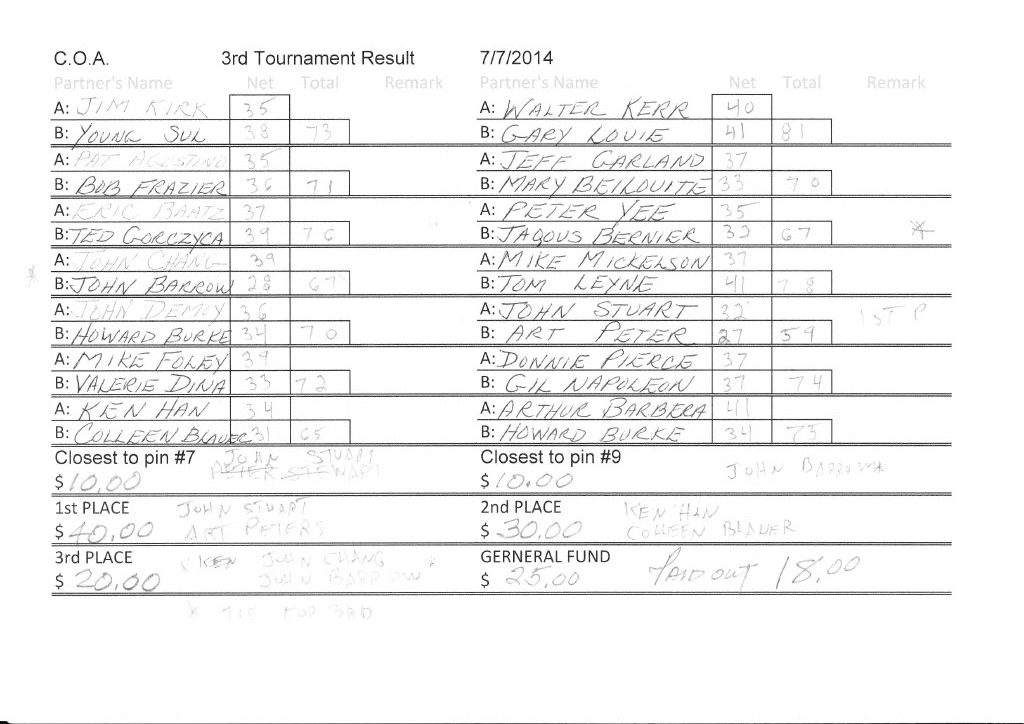 C.O.A. 3rd Tournament Result 7/7/2014
Partner's Name Net Total Remark Partner's Name Net Total Remark
A: JIM KIRK 35 A: WALTER KERR 40
B: YOUNG SUL 38 73 B: GARY LOUIE 41 81
A: PAT AGOSTINO 35 A: JEFF GARLAND 37
B: BOB FRAZIER 36 71 B: MARY BEILOUITE 33 70
A: ERIC BAATZ 37 A: PETER YEE 35
B: TED GORCZYCA 39 76 B: JAQOUS BERNIER 32 67 *
A: JOHN CHANG 39 A: MIKE MICKELSON 37
* B: JOHN BARROW 28 67 B: TOM LEYNE 41 78
A: JOHN DEMLY 36 A: JOHN STUART 32 1ST P
B: HOWARD BURKE 34 70 B: ART PETER 27 59
A: MIKE FOLEY 39 A: DONNIE PIERCE 37
B: VALERIE DINA 33 72 B: GIL NAPOLEON 37 74
A: KEN HAN 34 A: ARTHUR BARBERA 41
B: COLLEEN BLAUER 31 65 B: HOWARD BURKE 34 75
Closest to pin #7 JOHN STUART Closest to pin #9
$10.00 PETER STEWART $10.00 JOHN BARROW
1st PLACE JOHN STUART 2nd PLACE KEN HAN
$40.00 ART PETERS $30.00 COLLEEN BLAUER
3rd PLACE * KEN JOHN CHANG * GERNERAL FUND
$20.00 JOHN BARROW $25.00 PAID OUT 18.00
* TIE FOR 3RD